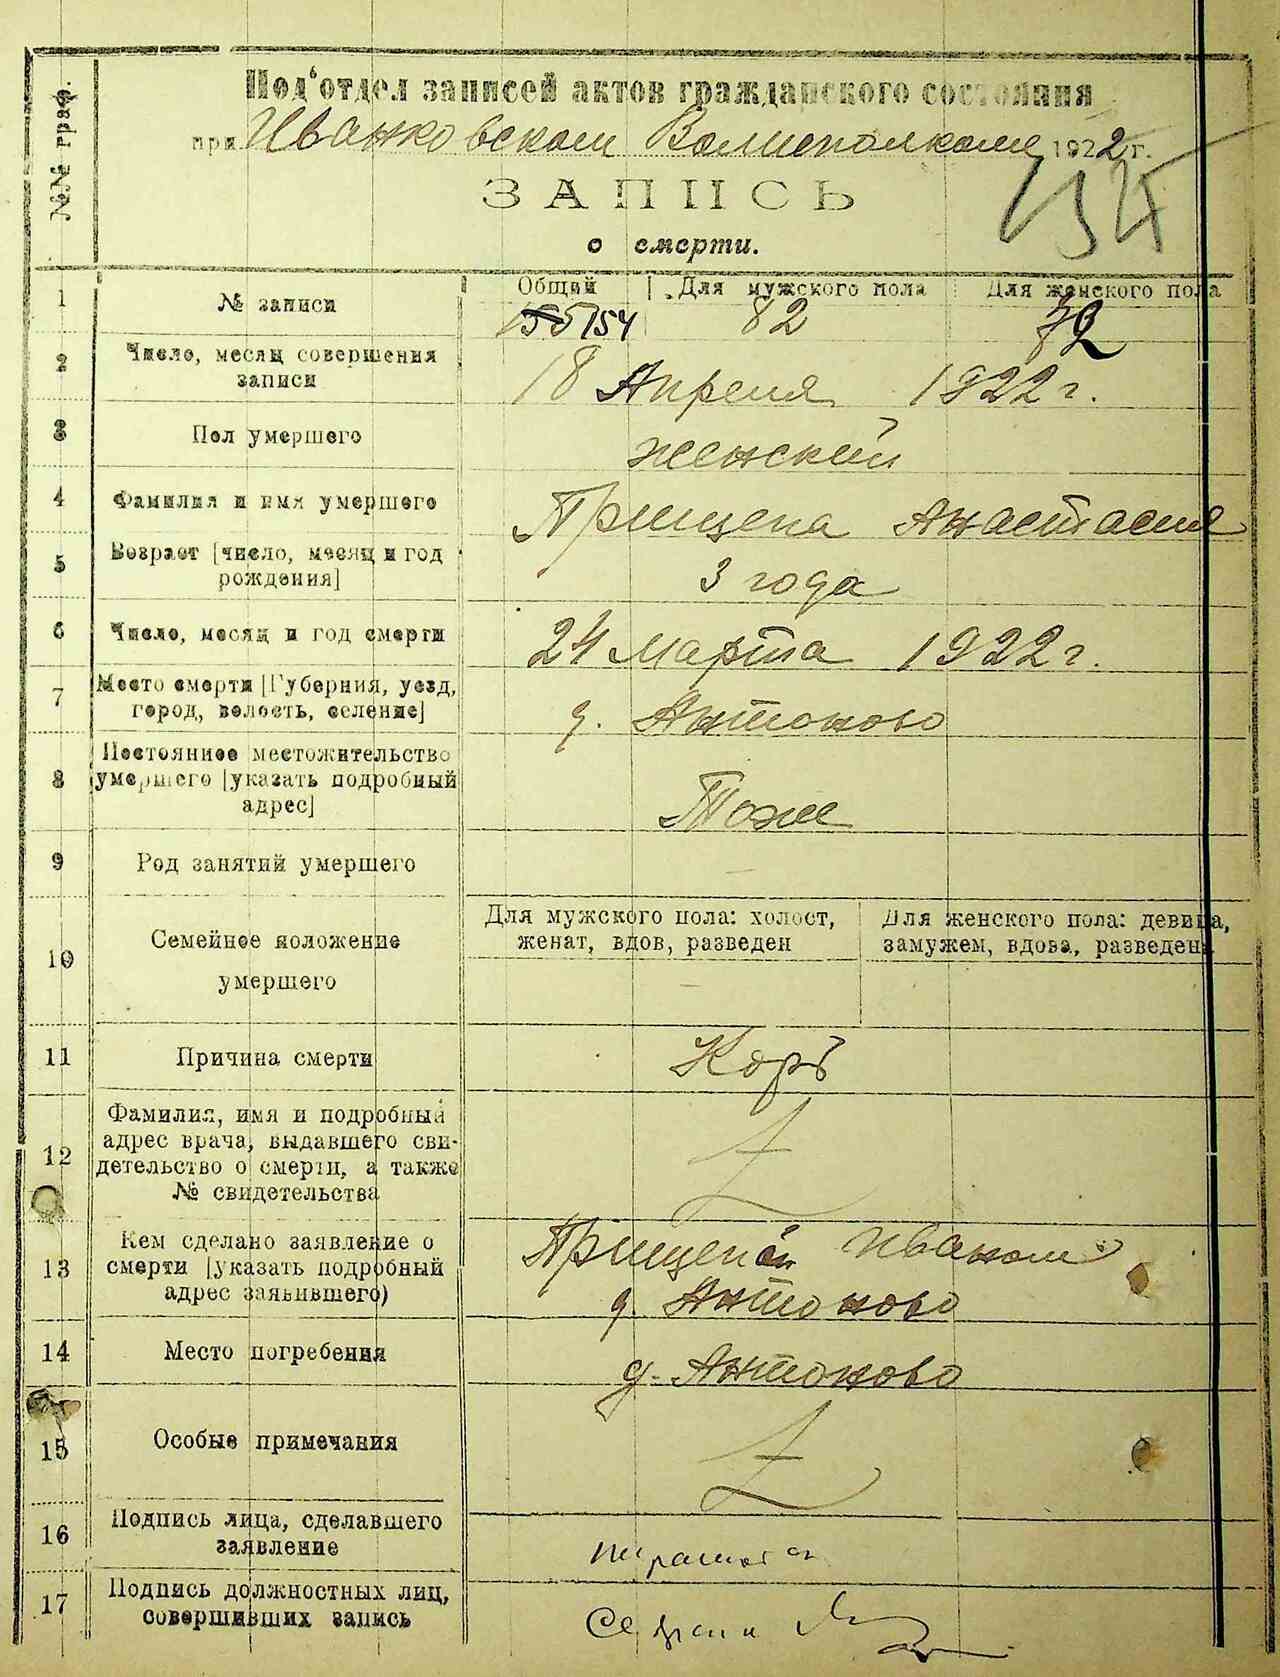 №№ граф.
Под'отдел записей актов гражданского состояния
при Иванковском Волисполкоме 1922 г.
ЗАПИСЬ
о смерти.
1 № записи Общий Для мужского пола Для женского пола
155 154 82 72
2 Число, месяц совершения
записи
18 Апреля 1922 г.
3 Пол умершего женский
4 Фамилия и имя умершего Прищепа Анастасия
5 Возраст [число, месяц и год
рождения]
3 года
6 Число, месяц и год смерти 24 Марта 1922 г.
7 Место смерти [Губерния, уезд,
город, волость, селение]
д. Антоново
8 Постоянное местожительство
умершего [указать подробный
адрес]
Тоже
9 Род занятий умершего
10 Семейное положение
умершего
Для мужского пола: холост,
женат, вдов, разведен
Для женского пола: девица,
замужем, вдова, разведена
11 Причина смерти Корь
12 Фамилия, имя и подробный
адрес врача, выдавшего сви-
детельство о смерти, а также
№ свидетельства
13 Кем сделано заявление о
смерти [указать подробный
адрес заявившего)
Прищепой Иваном
д. Антоново
14 Место погребения д. Антоново
15 Особые примечания
16 Подпись лица, сделавшего
заявление
17 Подпись должностных лиц,
совершивших запись